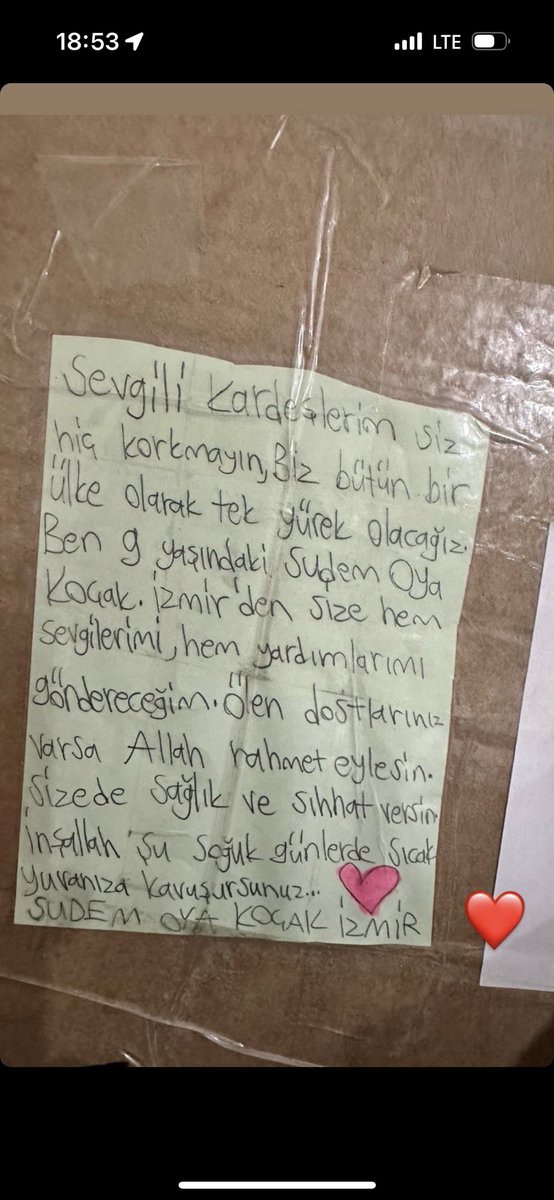 18:53
LTE
Sevgili Kardeşlerim siz
hiç korkmayın, Biz bütün bir
ülke olarak tek yürek olacağız.
Ben 9 yaşındaki Sudem Oya
Koçak. İzmir'den size hem
sevgilerimi, hem yardımlarımı
göndereceğim. Ölen dostlarınız
varsa Allah rahmet eylesin.
Sizede sağlık ve sıhhat versin
inşallah şu soğuk günlerde sıcak
yuvanıza kavuşursunuz...
SUDEM OYA KOÇAK İZMİR